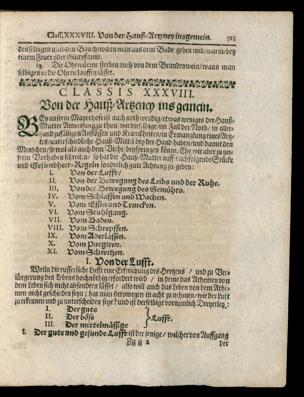 Class. XXXVIII. Von der Hauß-Artzney insgemein. 915
denselbigen auf dem Bauch/ wann man aus dem Bade gehen will/ warm/ bey
einem Feuer oder Glutpfanne.
13. Die Ohrwürme sterben auch von dem Brandtewein/ wann man
selbigen in die Ohren lauffen lässet.
CLASSIS XXXVIII.
Von der Hauß-Artzney ins gemein.
BEy unserm Mayerhofe ist auch noth wendig/ etwas weniges der Hauß-
Mutter Anweisung zu thun/ wie diese/ im Fall der Noth/
und Kranckheiten/ in Ermanglung eines Artz-
tes/ unterschiedliche Hauß-Mittel bey der Hand haben/ und damit den
Menschen/ so wol als auch dem Viehe beyspringen könne. Ehe wir aber zu un-
serm Vorhaben schreiten/ so hat der Hauß-Mutter auff nachfolgende Stücke
und Gesundheit-Regeln sonderlich gute Achtung zu geben:
I. Von der Lufft/
II. Von der Bewegung des Leibs und der Ruhe.
III. Von der Bewegung des Gemühts.
IV. Vom Schlaffen und Wachen.
V. Vom Essen und Trincken.
VI. Vom Stuhlgang.
VII. Vom Baden.
VIII. Vom Schrepffen.
IX. Vom Aderlassen.
X. Vom Purgiren.
XI. Vom Schwitzen.
I. Von der Lufft.
Weiln die eusserliche Lufft eine Erfrischung des Hertzens / und zu Ver-
längerung des Lebens hochnöthig erfordert wird / in deme das Athemen von
dem Leben sich nicht absondern lässet / also will auch das Leben von dem Athe-
men nicht geschieden seyn; hat man deßwegen in acht zu nehmen/ wie der Lufft
zu erkennen und zu unterscheiden seye? und ist derselbige vornemlich Dreyerley,:
I. Der gute
II. Der böse } Lufft.
III. Der mittelmässige
I. Der gute und gesunde Lufft ist der jenige/ welcher von Auffgang
der